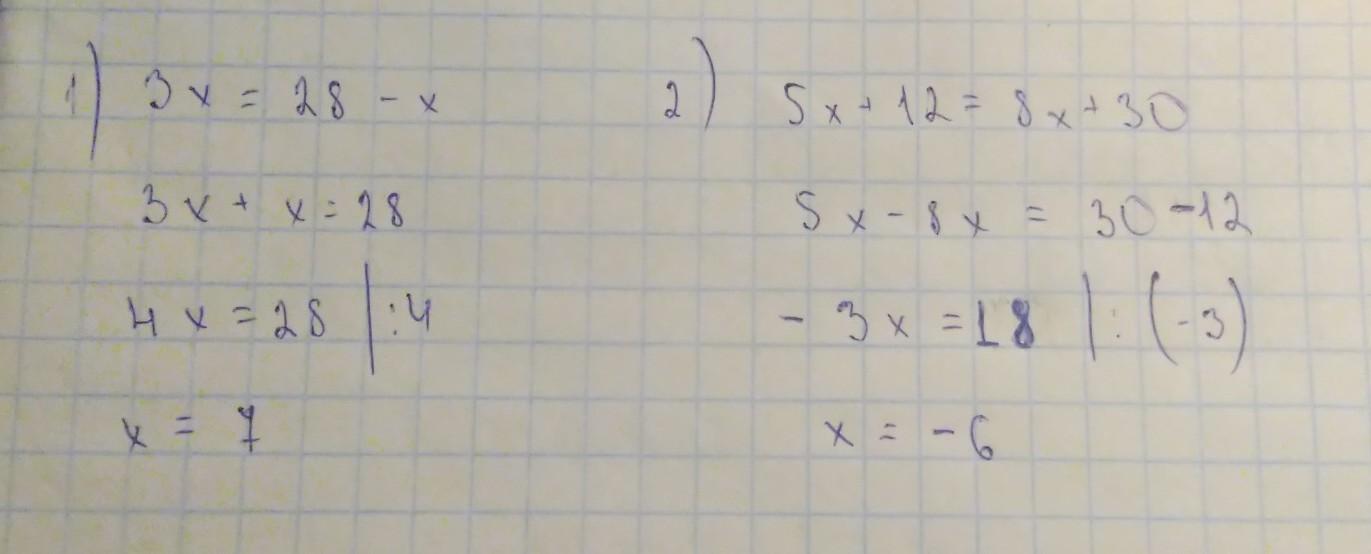 1) 3x = 28 - x
3x + x = 28
4x = 28 | : 4
x = 7
2) 5x + 12 = 8x + 30
5x - 8x = 30 - 12
- 3x = 18 | : (-3)
x = - 6